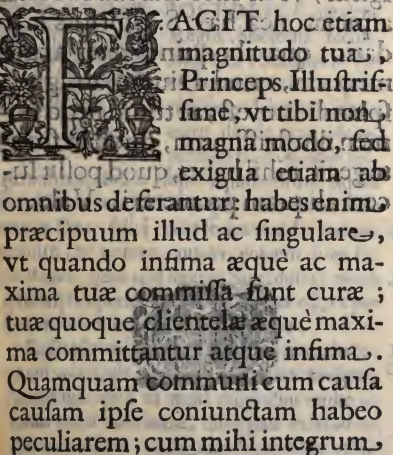 FACIT hoc etiam
magnitudo tua
Princeps Illuſtriſ-
ſime, vt tibi non
magna modo, ſed
exigua etiam ab
omnibus deferantur: habes enim
præcipuum illud ac ſingulare,
vt quando infima æquè ac ma-
xima tuæ commiſſa ſunt curæ ;
tuæ quoque clientelæ æquè maxi-
ma committantur atque infima.
Quamquam communi cum cauſa
cauſam ipſe coniunctam habeo
peculiarem ; cum mihi integrum